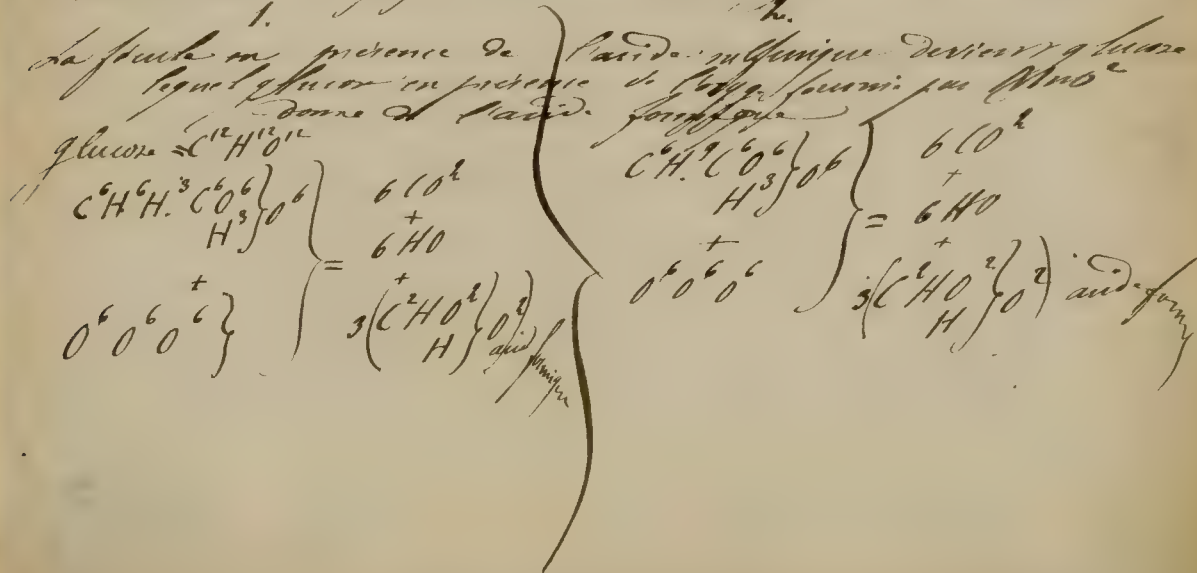 1. 2.
La fécule en présence de l'acide sulfurique devient glucose
lequel glucose en présence de l'oxyg fourni par MnO²
donne de l'acide formique
glucose = C¹²H¹²O¹²
C⁶H⁶H.³C⁶O⁶ } O⁶ = 6CO²
H³
+
6HO
+
O⁶ O⁶ O⁶ }
3(C²HO² } O²)
H
acide formique
C⁶H.⁹C⁶O⁶ } O⁶ = 6CO²
H³
+
6HO
+
O⁶ O⁶ O⁶
3(C²HO² } O²) acide formiq
H